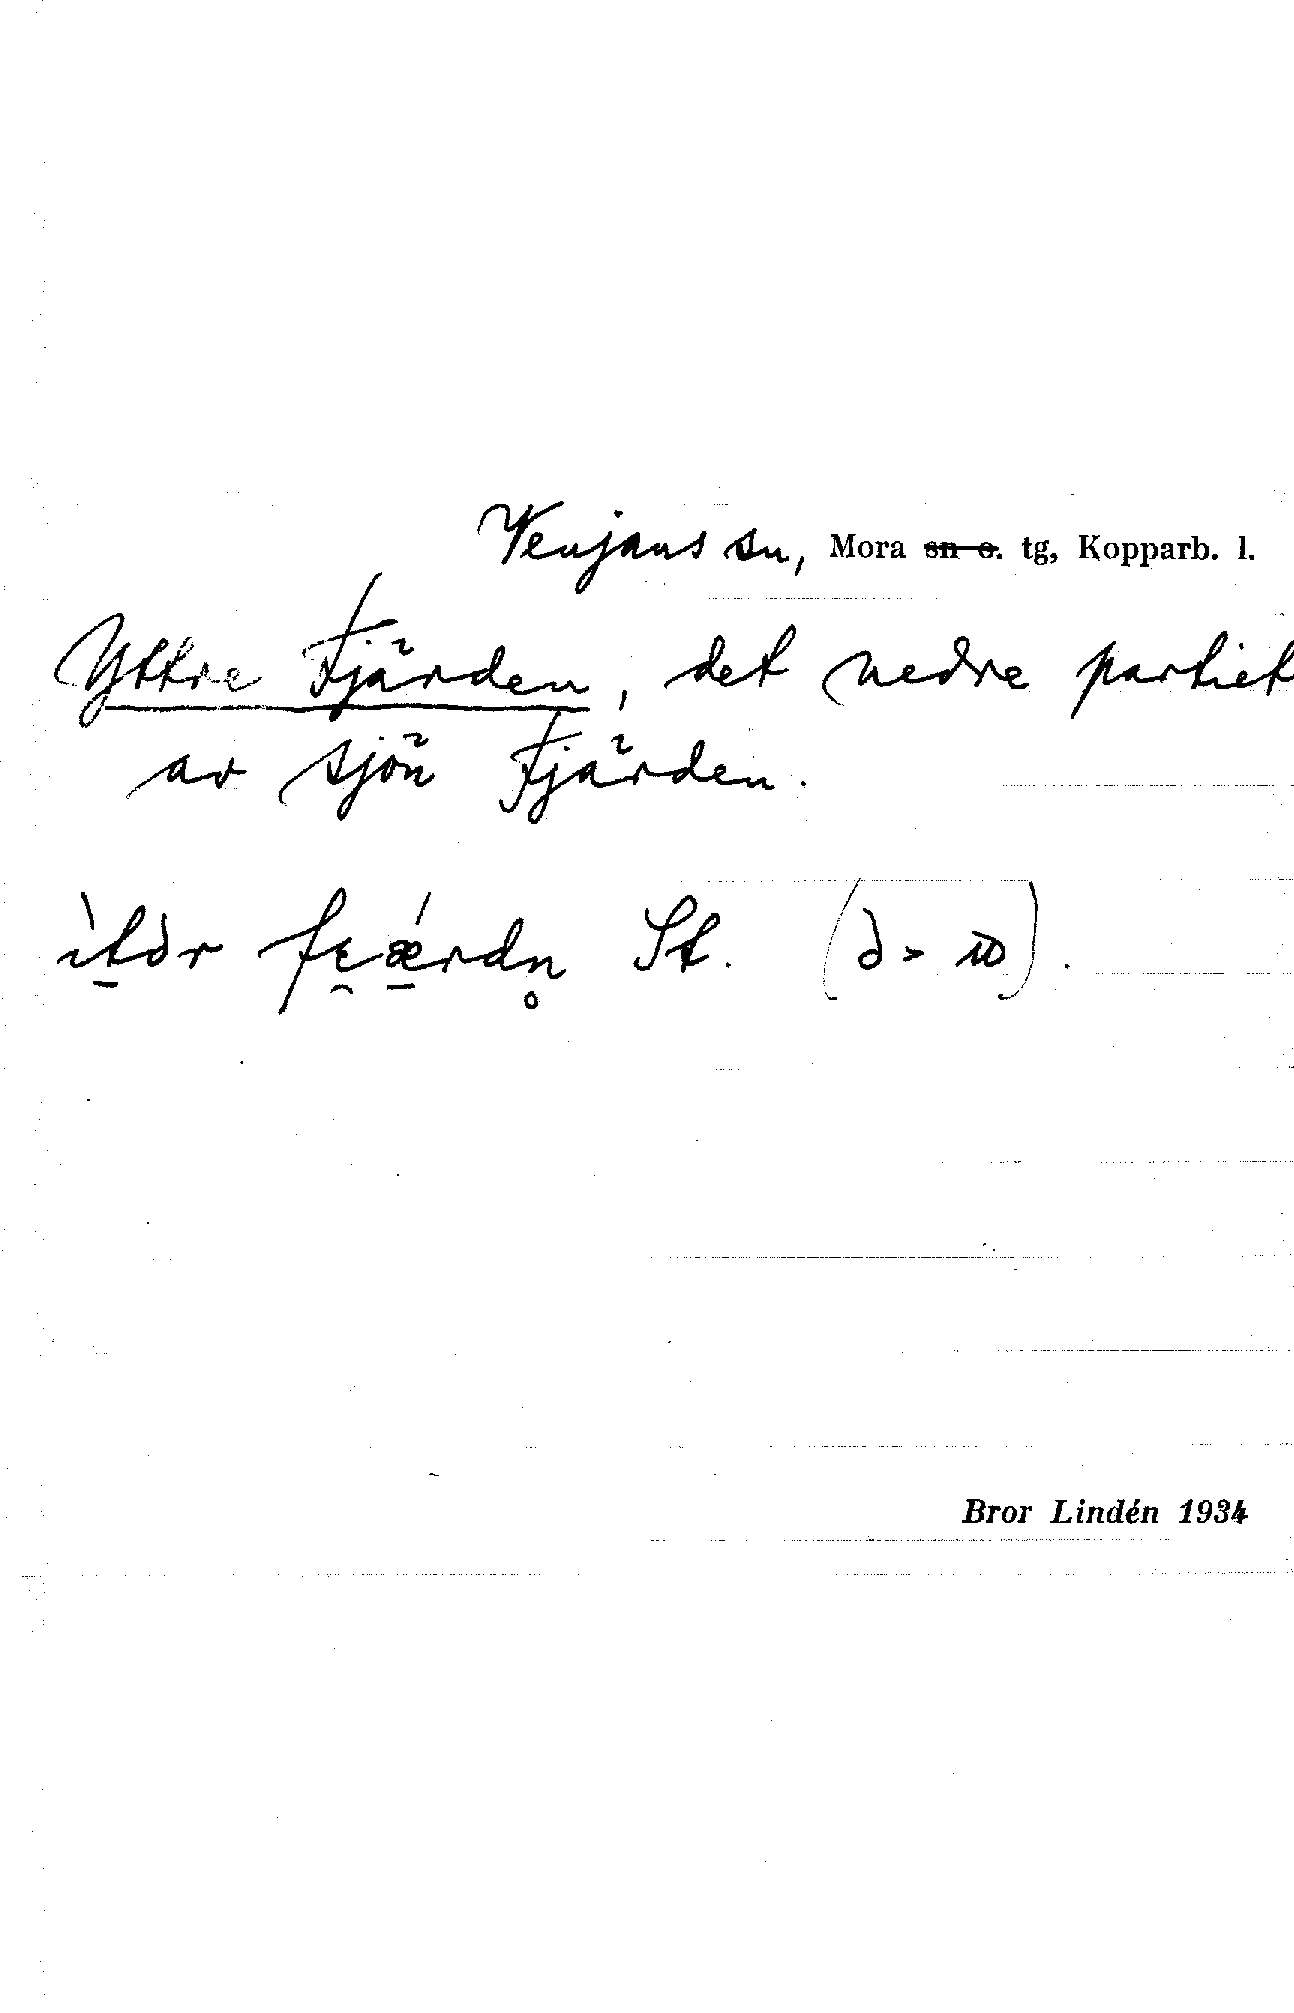 Venjans sn, Mora sn o. tg, Kopparb. l.
Yttre Fjärden, det nedre partiet
av sjön Fjärden.
St.
Bror Lindén 1934